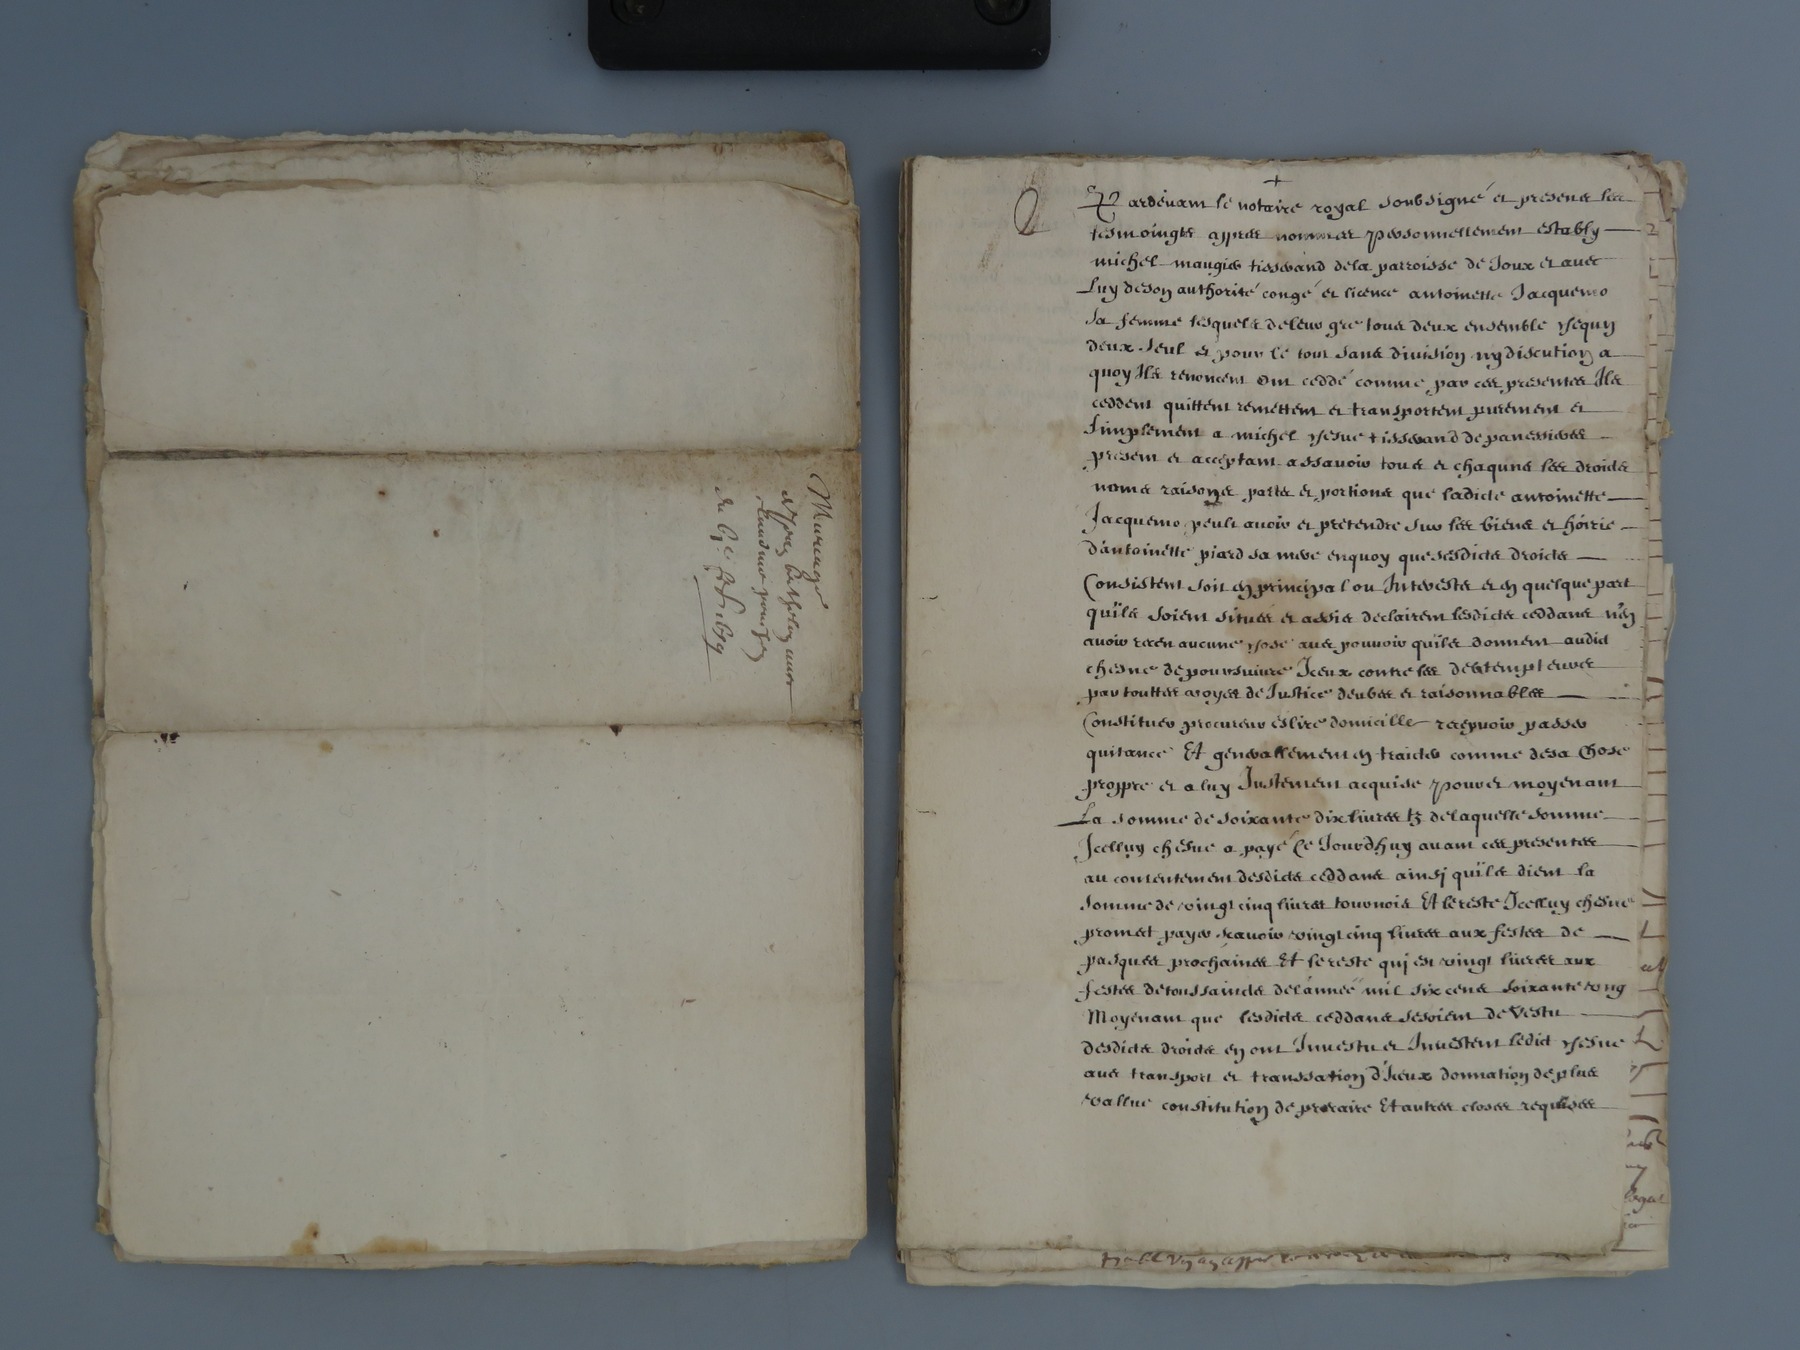 Mariage
du 6e
+
Pardevant le notaire royal soubsigné et presens les
tesmoingts appres nommes personnellement estably
michel maugier tisserand dela parroisse de Joux et avec
Luy deson authorité congé et licence antoinette Jacquemo
sa femme lesquels deleur gre tous deux ensemble chequn
deux seul et pour le tout sans division ny discution a
quoy Ils renoncent ont ceddé comme par ces presentes Ils
ceddent quittent remettent et transportent purement et
simplement a michel chesne tisserand de panessieres
present et acceptant assavoir tous et chaquns les droicts
noms raisons parts et portions que ladicte antoinette
Jacquemo peult avoir et pretendre sur les biens et hoirie
d'antoinette piard sa mere enquoy quesesdicts droicts
Consistent soit en principal ou Interests et en quelque part
quils soient situés et assis declairent lesdicts ceddans n'en
avoir receu aucune chose avec pouvoir quils donnent audict
chesne de poursuivre Iceux contre les debtempteures
par touttes voyes de Justice deubes et raisonnables
Constituer procureur eslire domicille recepvoir passer
quitance Et generallement en traicter comme desa Chose
propre et a luy Justement acquise pour et moyenant
La somme de soixante dix livres tz delaquelle somme
Icelluy chesne a payé Ce Jourdhuy avant ces presentes
au consentement desdicts ceddans ainsi quils dient la
somme de vingt cinq livres tournois Et lereste Icelluy chesne
promet payer scavoir vingt cinq livres aux festes de
pasques prochaines Et lereste qui est vingt livres aux
festes detoussaincts delannée mil six cens soixante vng
Moyenant que lesdicts ceddans sesoient devestu
desdicts droicts en ont Investu et Investent ledict chesne
avec transport et translation d'Iceux donnation de plus
vallue constitution de precaire Et autres closes requises